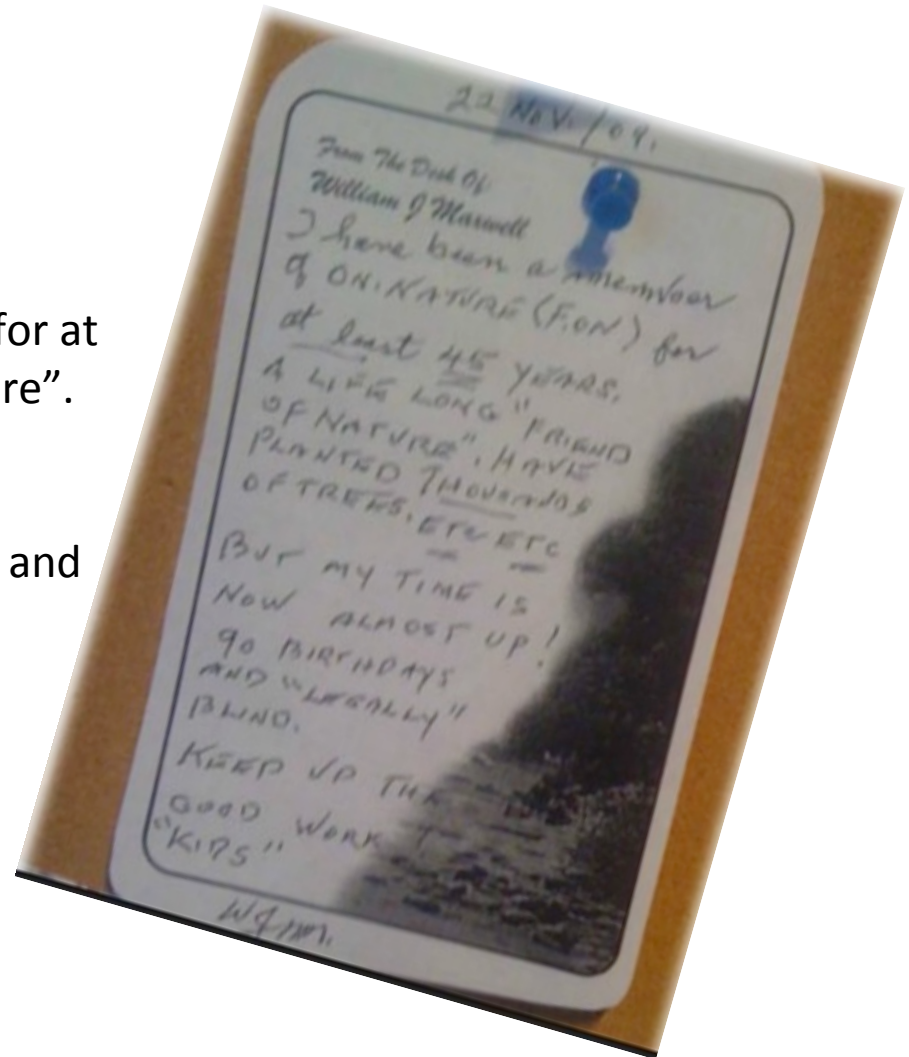 for at
re”.
and
22 NOV. / 09.
From The Desk Of:
William J Maxwell
I have been a member
of ON. NATURE (F.ON) for
at least 45 YEARS.
A LIFE LONG "FRIEND
OF NATURE", HAVE
PLANTED THOUSANDS
OF TREES, ETC ETC
BUT MY TIME IS
NOW ALMOST UP!
90 BIRTHDAYS
AND "LEGALLY"
BLIND.
KEEP UP THE
GOOD WORK
"KIDS"
WJM.